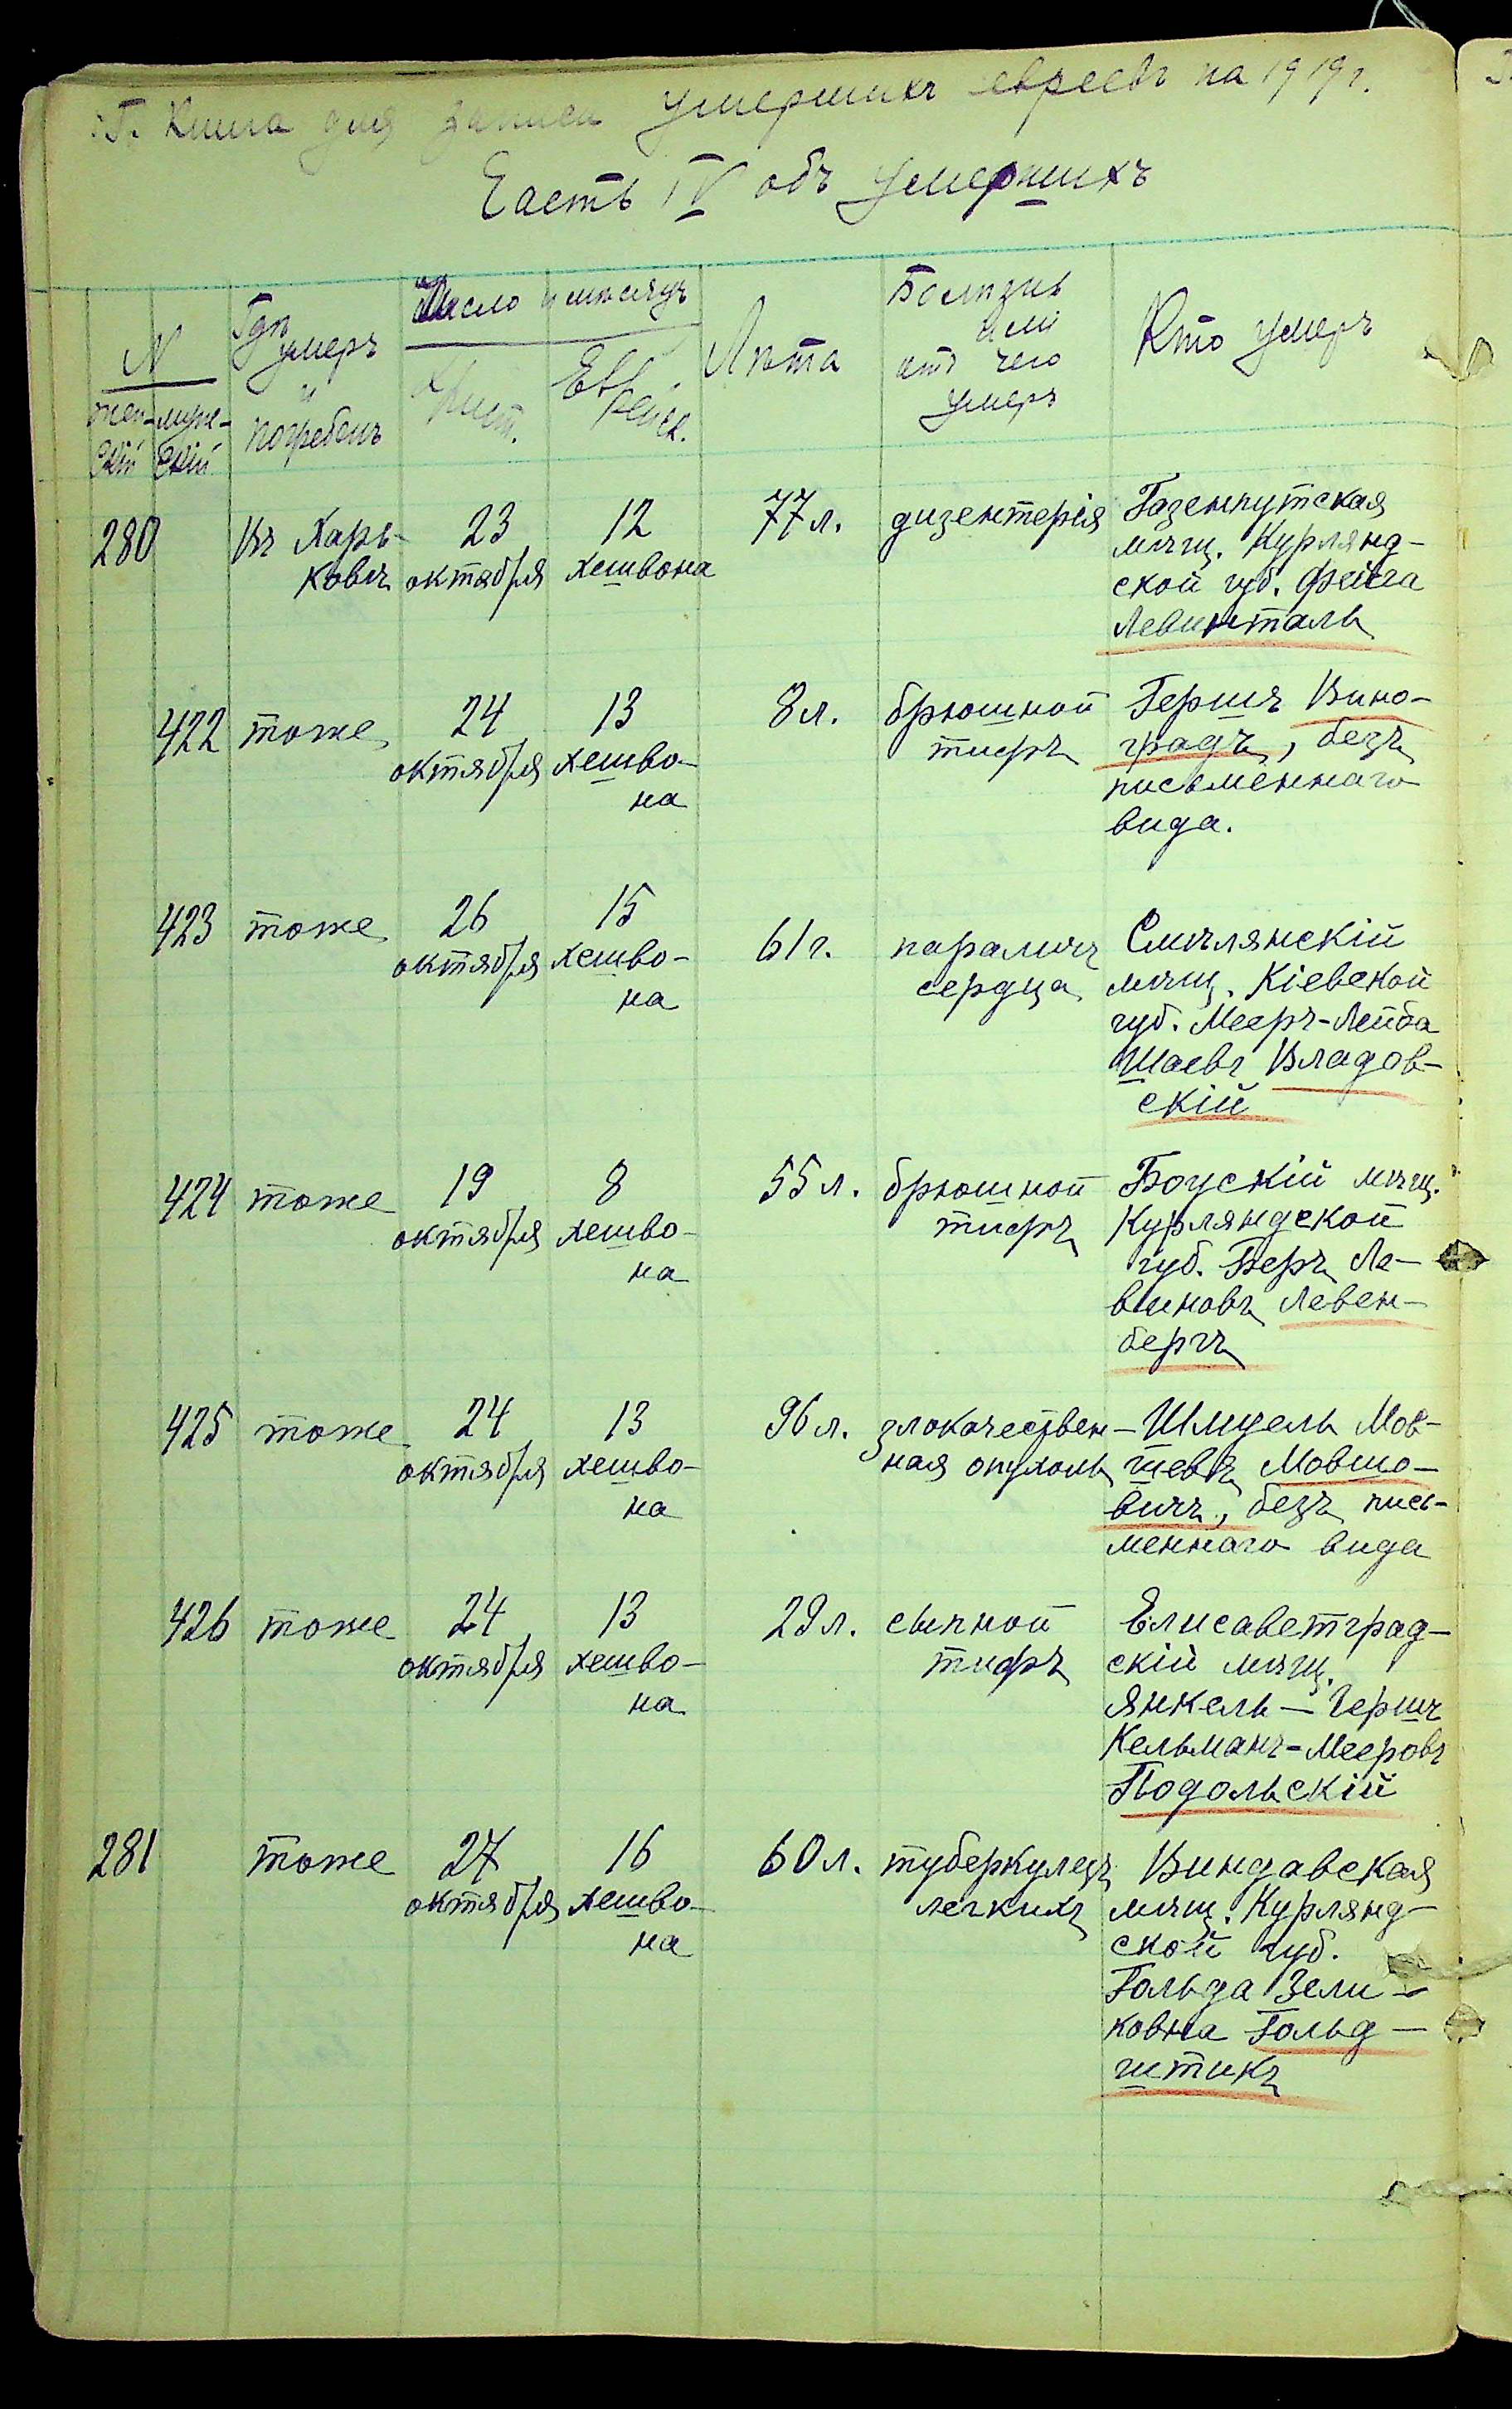 Книга для записи умершихъ евреевъ на 1919 г.
Часть IV объ умершихъ
N
жен-
скій
муже-
скій
Гдѣ
умеръ
и
погребенъ
Число и мѣсяцъ
Христ.
Ев-
рейск.
Лѣта
Болѣзнь
или
отъ чего
умеръ
Кто умеръ
280
Въ Харь-
ковѣ
23
октября
12
хешвона
77 л.
дизентерія
Газенпутская
мѣщ. Курлянд-
ской губ. Фейга
Левинталь
422
тоже
24
октября
13
хешво-
на
8 л.
брюшной
тифъ
Гершъ Вино-
градъ, безъ
письменнаго
вида.
423
тоже
26
октября
15
хешво-
на
61 г.
параличъ
сердца
Смѣлянскій
мѣщ. Кіевской
губ. Мееръ-Лейба
Шаевъ Владов-
скій
424
тоже
19
октября
8
хешво-
на
55 л.
брюшной
тифъ
Боускій мѣщ.
Курляндской
губ. Беръ Ле-
виновъ Левен-
бергъ
425
тоже
24
октября
13
хешво-
на
96 л.
злокачествен-
ная опухоль
Шмуель Мов-
шевъ Мовшо-
вичъ, безъ пись-
меннаго вида
426
тоже
24
октября
13
хешво-
на
29 л.
сыпной
тифъ
Елисаветград-
скій мѣщ.
Янкель-Гершъ
Кельманъ-Мееровъ
Подольскій
281
тоже
27
октября
16
хешво-
на
60 л.
туберкулезъ
легкихъ
Виндавская
мѣщ. Курлянд-
ской губ.
Гольда Зели-
ковна Гольд-
штикъ